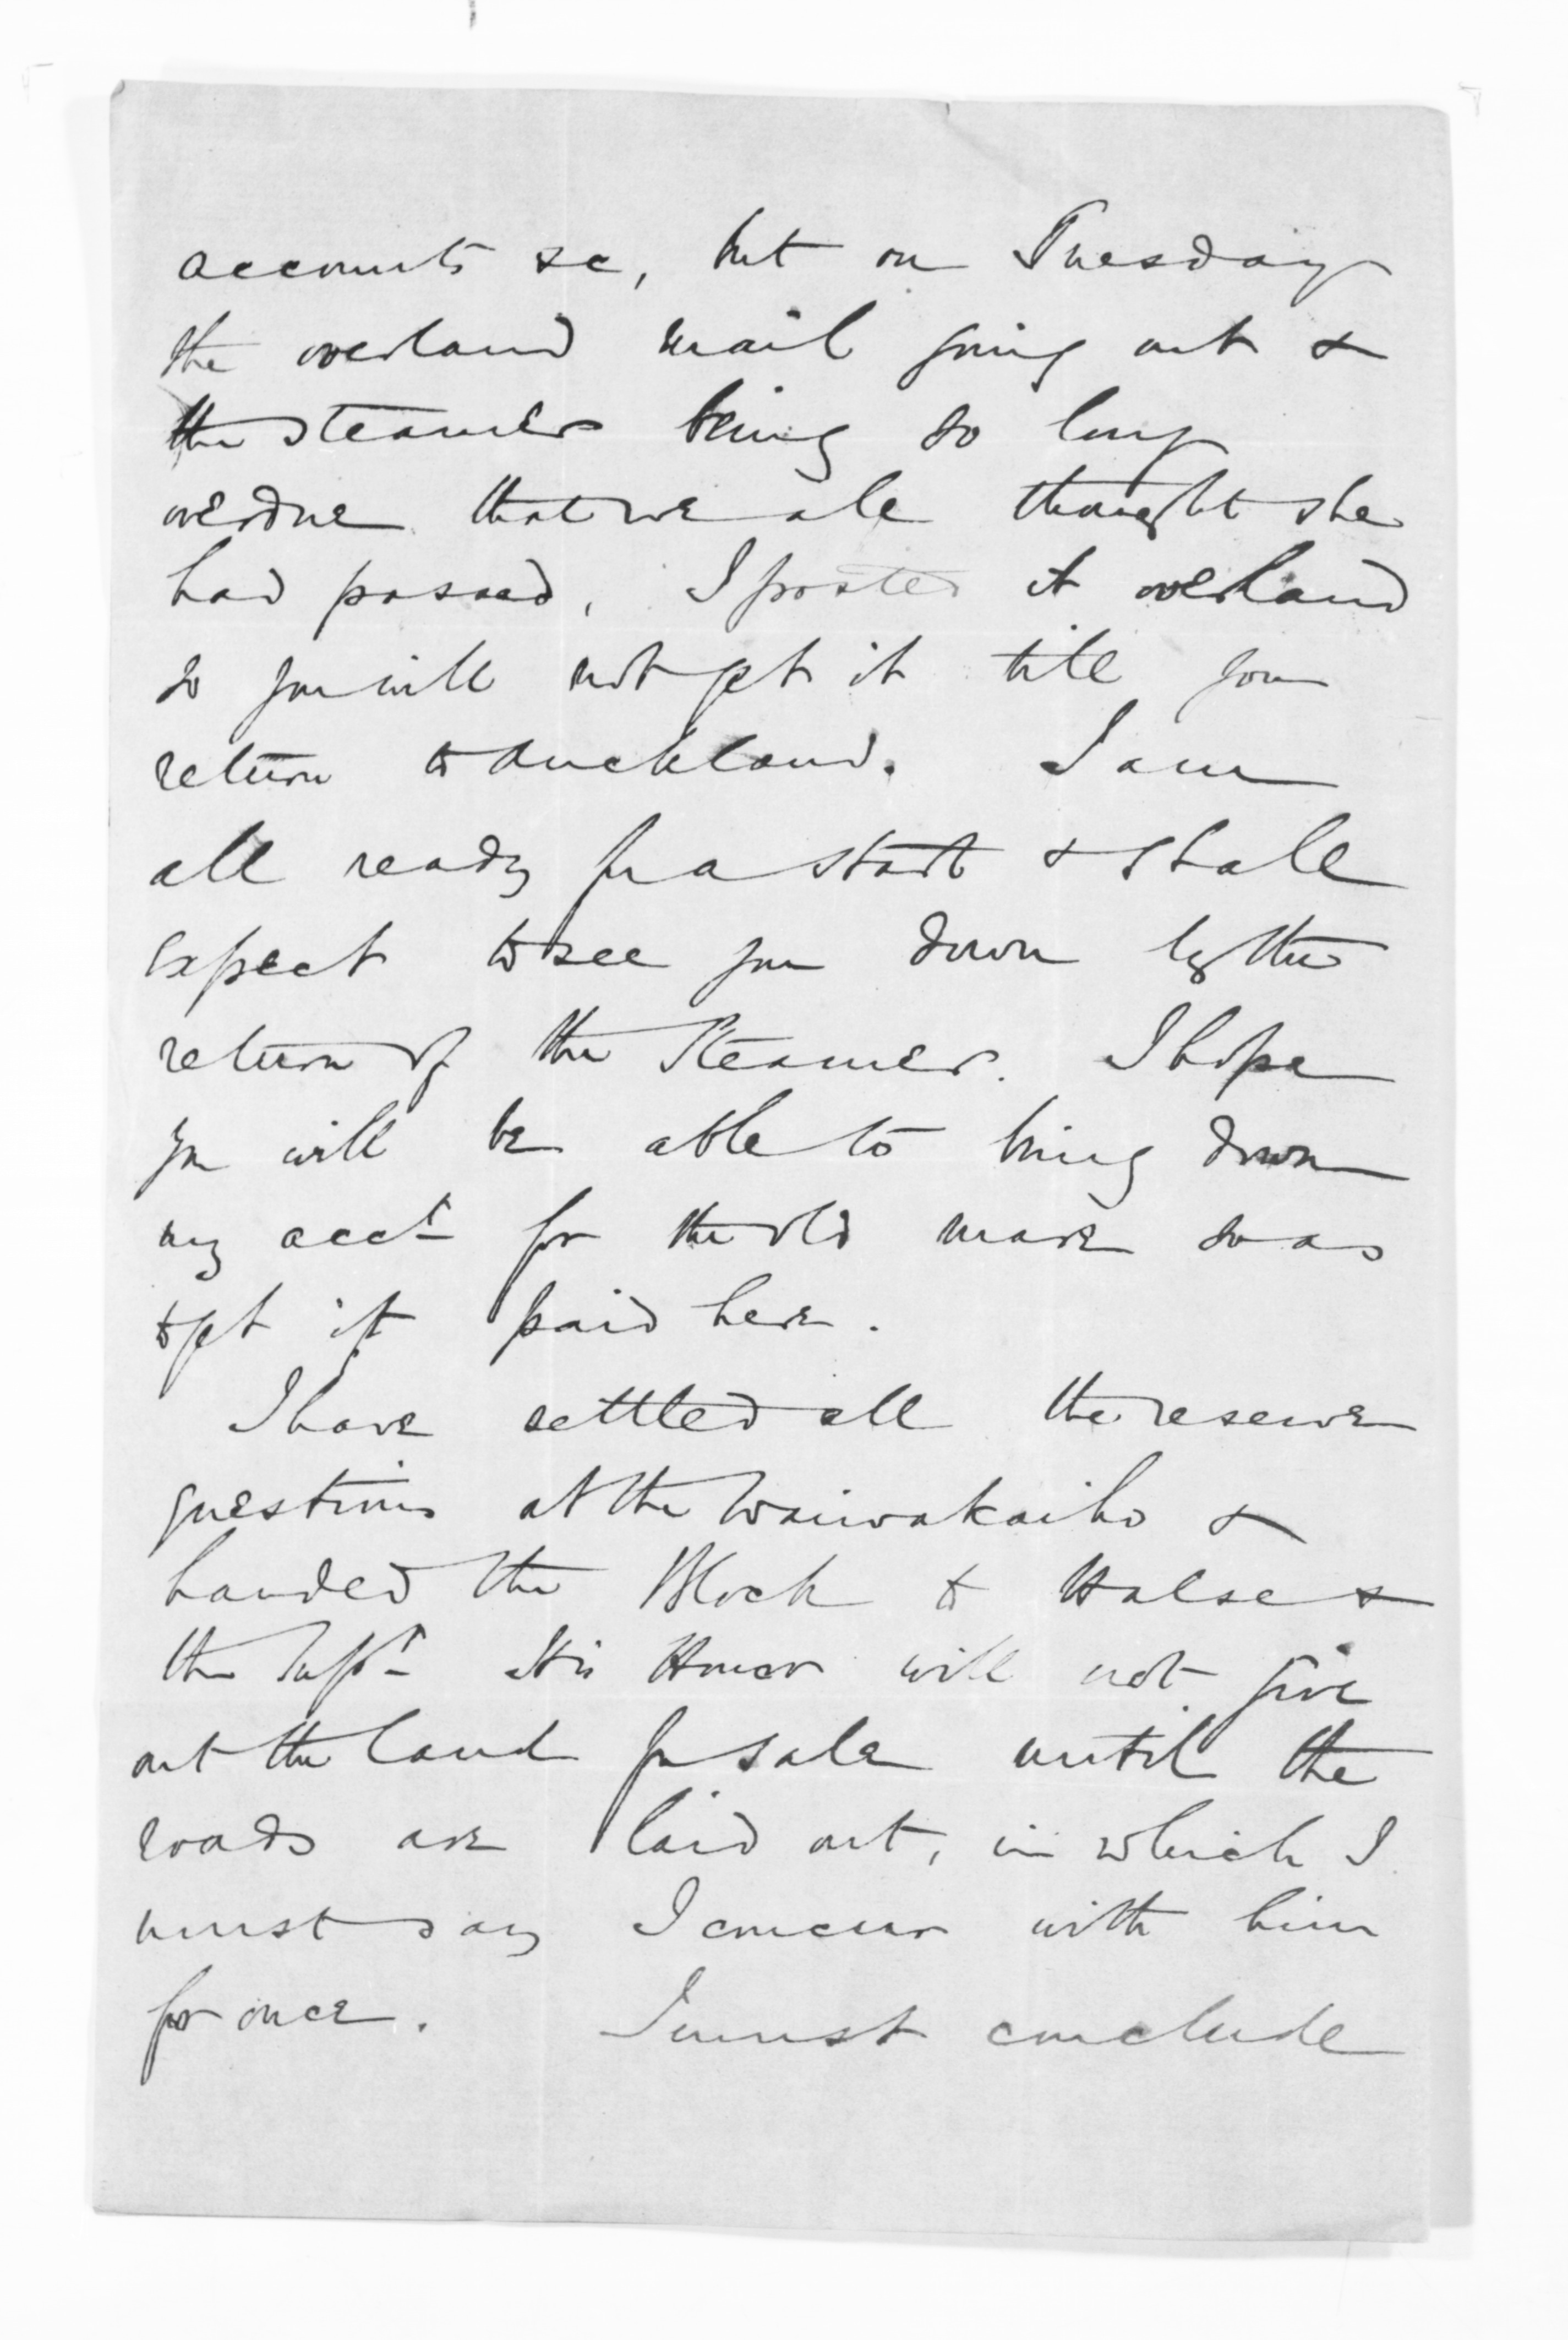 accounts &c, but on Tuesday
the overland mail going out &
the steamer being so long
overdue that we all thought she
had passed, I posted it overland
so you will not get it till you
return to Auckland. I am
all ready for a start & shall
expect to see you down by the
return of the Steamer. I hope
you will be able to bring down
my acct for the old mare so as
to get it paid here.
I have settled all the reserve
questions at the Waiwakaiho &
handed the Block to Halse &
the Supt. His Honor will not give
out the land for sale until the
roads are laid out, in which I
must say I concur with him
for once. I must conclude